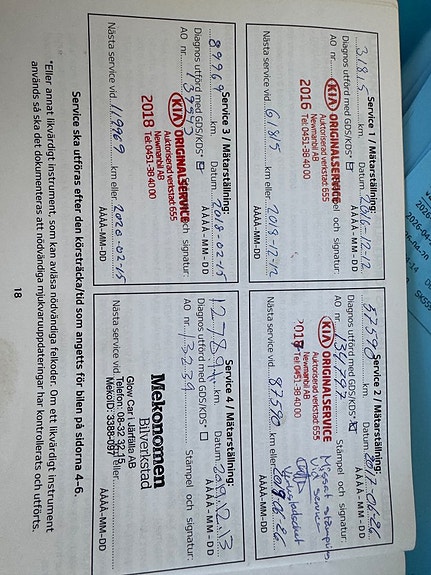 Service 1 / Mätarställning:
31815 km. Datum: 2016-12-12
ÅÅÅÅ-MM-DD
Diagnos utförd med GDS/KDS*
AO nr. Stämpel och signatur:
KIA ORIGINALSERVICE
Auktoriserad verkstad 655
Newmanbil AB
2016 Tel: 0451-38 40 00
Nästa service vid 61815 km eller 2018-12-12
ÅÅÅÅ-MM-DD
Service 2 / Mätarställning:
57590 km. Datum: 2017-06-26
ÅÅÅÅ-MM-DD
Diagnos utförd med GDS/KDS*
AO nr. 134797 Stämpel och signatur:
KIA ORIGINALSERVICE
Auktoriserad verkstad 655
Newmanbil AB
2017 Tel: 0451-38 40 00
Missat stämpla
vid service
Nästa service vid 87590 km eller 2019-06-26
ÅÅÅÅ-MM-DD
Service 3 / Mätarställning:
89969 km. Datum: 2018-02-15
ÅÅÅÅ-MM-DD
Diagnos utförd med GDS/KDS*
AO nr. 139543 Stämpel och signatur:
KIA ORIGINALSERVICE
Auktoriserad verkstad 655
Newmanbil AB
2018 Tel: 0451-38 40 00
Nästa service vid 119969 km eller 2020-02-15
ÅÅÅÅ-MM-DD
Service 4 / Mätarställning:
km. Datum:
ÅÅÅÅ-MM-DD
Diagnos utförd med GDS/KDS*
AO nr. 13239 Stämpel och signatur:
Mekonomen
Bilverkstad
Glow Car i Järfälla AB
Telefon: 08-32 32 15
MekoID: 3388-697
Nästa service vid eller
ÅÅÅÅ-MM-DD
Service ska utföras efter den körsträcka/tid som angetts för bilen på sidorna 4–6.
*Eller annat likvärdigt instrument, som kan avläsa nödvändiga felkoder. Om ett likvärdigt instrument
används så ska det dokumenteras att nödvändiga mjukvaruuppdateringar har kontrollerats och utförts.
18